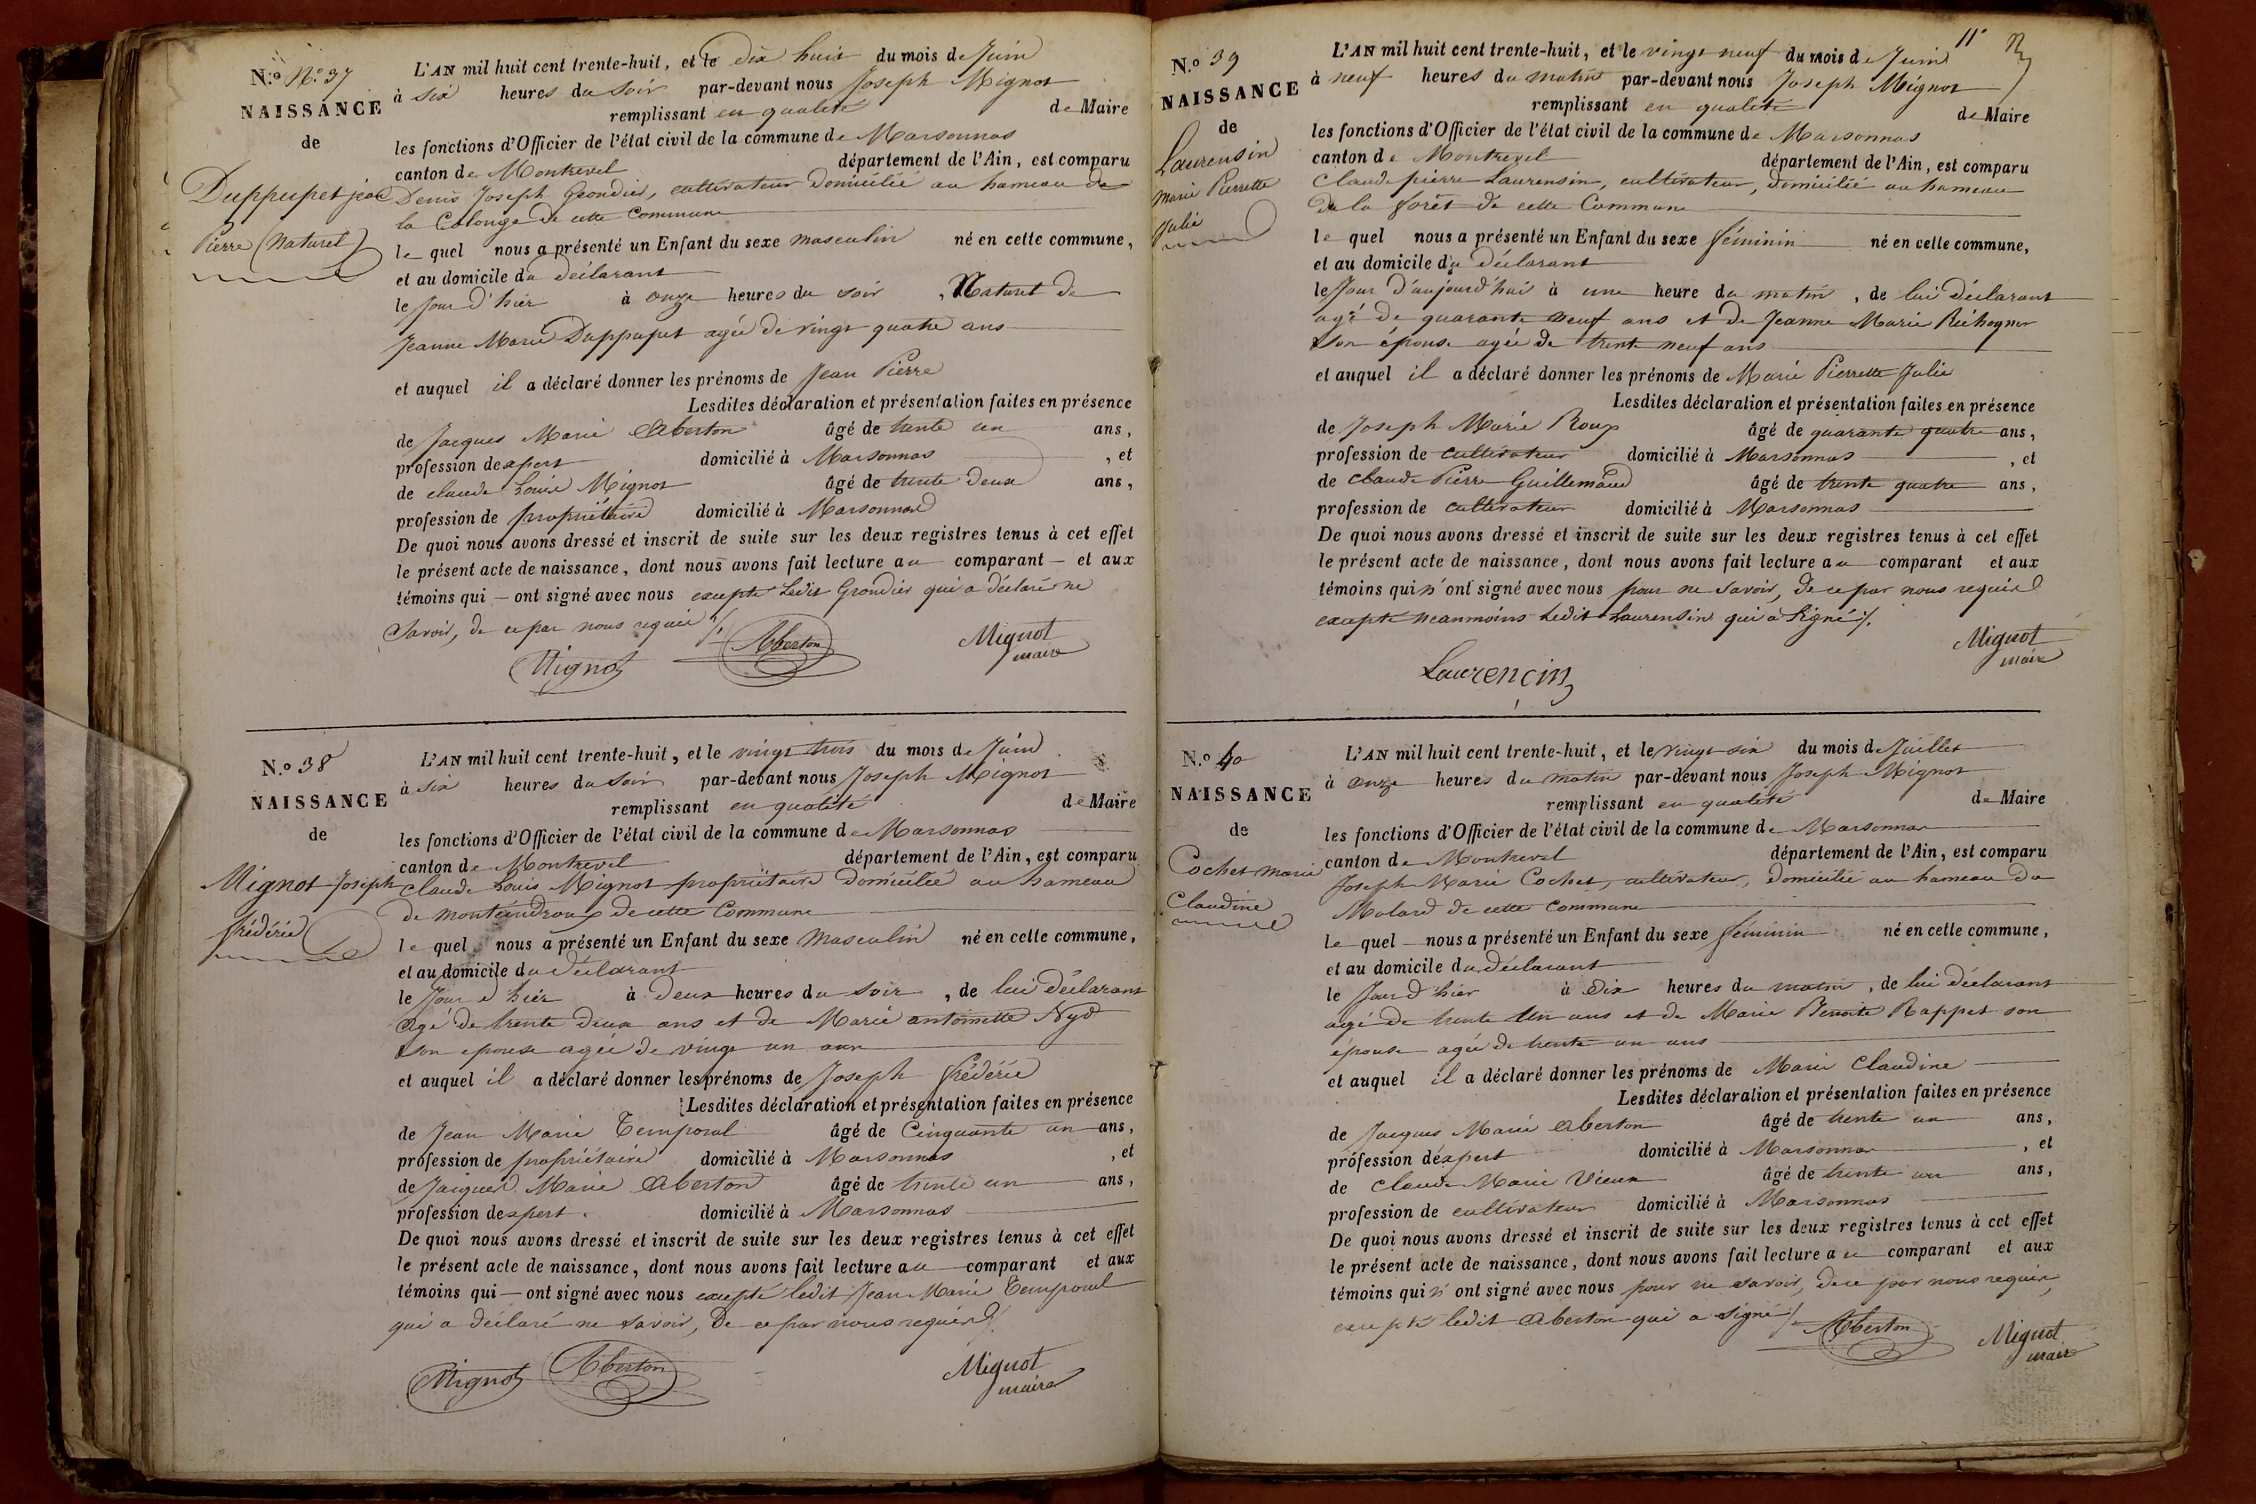 N.º Nº 37
NAISSANCE
de
Duppupet jean
Pierre (Naturel)
L'AN mil huit cent trente-huit, et le dix huit du mois de Juin
à six heures du soir par-devant nous Joseph Mignot
remplissant en qualité de Maire
les fonctions d'Officier de l'état civil de la commune de Marsonnas
canton de Montrevel département de l'Ain, est comparu
Denis Joseph Grondier, cultivateur domicilié au hameau de
la Colonge de cette Commune
le quel nous a présenté un Enfant du sexe masculin né en cette commune,
et au domicile du déclarant
le jour d'hier à onze heures du soir , Naturel de
Jeanne Marie Duppupet agée de vingt quatre ans
et auquel il a déclaré donner les prénoms de Jean Pierre
Lesdites déclaration et présentation faites en présence
de Jacques Marie Aberton âgé de trente un ans,
profession dexpert domicilié à Marsonnas , et
de claude Louis Mignot âgé de trente deux ans,
profession de propriétaire domicilié à Marsonnas
De quoi nous avons dressé et inscrit de suite sur les deux registres tenus à cet effet
le présent acte de naissance, dont nous avons fait lecture au comparant et aux
témoins qui ont signé avec nous excepté Ledit Grondier qui a déclaré ne
Savoir, de ce par nous requis
Mignot Aberton Mignot
maire
N.º 38
NAISSANCE
de
Mignot Joseph
frédéric
L'AN mil huit cent trente-huit, et le vingt trois du mois de Juin
à six heures du soir par-devant nous Joseph Mignot
remplissant en qualité de Maire
les fonctions d'Officier de l'état civil de la commune de Marsonnas
canton de Montrevel département de l'Ain, est comparu
Claude Louis Mignot propriétaire domicilié au hameau
de montéindroux de cette Commune
le quel nous a présenté un Enfant du sexe Masculin né en cette commune,
et au domicile du déclarant
le Jour d'hier à deux heures du soir , de lui déclarant
agé de trente deux ans et de Marie antoinette Nyd
son epouse agée de vingt un ans
et auquel il a déclaré donner les prénoms de Joseph frédéric
Lesdites déclaration et présentation faites en présence
de Jean Marie Temporal âgé de Cinquante un ans,
profession de propriétaire domicilié à Marsonnas , et
de Jacques Marie Aberton âgé de trente un ans,
profession dexpert domicilié à Marsonnas
De quoi nous avons dressé et inscrit de suite sur les deux registres tenus à cet effet
le présent acte de naissance, dont nous avons fait lecture au comparant et aux
témoins qui ont signé avec nous excepté ledit Jean Marie Temporal
qui a déclaré ne savoir, De ce par nous requis
Mignot Aberton Mignot
maire
11
N.º 39
NAISSANCE
de
Laurensin
marie Pierrette
Julie
L'AN mil huit cent trente-huit, et le vingt neuf du mois de Juin
à neuf heures du matin par-devant nous Joseph Mignot
remplissant en qualité de Maire
les fonctions d'Officier de l'état civil de la commune de Marsonnas
canton de Montrevel département de l'Ain, est comparu
Claude pierre Laurensin, cultivateur, domicilié au hameau
de la forêt de cette Commune
le quel nous a présenté un Enfant du sexe féminin né en cette commune,
et au domicile du déclarant
le Jour d'aujourd'hui à une heure du matin , de lui déclarant
agé de quarante neuf ans et de Jeanne Marie
son épouse agée de trente neuf ans
et auquel il a déclaré donner les prénoms de Marie Pierrette Julie
Lesdites déclaration et présentation faites en présence
de Joseph Marie Roux âgé de quarante quatre ans,
profession de cultivateur domicilié à Marsonnas , et
de claude Pierre Guillemaud âgé de trente quatre ans,
profession de cultivateur domicilié à Marsonnas
De quoi nous avons dressé et inscrit de suite sur les deux registres tenus à cet effet
le présent acte de naissance, dont nous avons fait lecture au comparant et aux
témoins qui n'ont signé avec nous pour ne savoir, de ce par nous requis
excepté neanmoins Ledit Laurensin qui a Signé
Laurencin Mignot
maire
N.º 40
NAISSANCE
de
Cochet marie
Claudine
L'AN mil huit cent trente-huit, et le vingt six du mois de Juillet
à onze heures du matin par-devant nous Joseph Mignot
remplissant en qualité de Maire
les fonctions d'Officier de l'état civil de la commune de Marsonnas
canton de Montrevel département de l'Ain, est comparu
Joseph Marie Cochet, cultivateur, domicilié au hameau du
Molard de cette commune
le quel nous a présenté un Enfant du sexe féminin né en cette commune,
et au domicile du déclarant
le jour d'hier à dix heures du matin , de lui déclarant
agé de trente un ans et de Marie Benoite Rappet son
épouse agée de trente un ans
et auquel il a déclaré donner les prénoms de Marie Claudine
Lesdites déclaration et présentation faites en présence
de Jacques Marie Aberton âgé de trente un ans,
profession dexpert domicilié à Marsonnas , et
de claude Marie Vieux âgé de trente un ans,
profession de cultivateur domicilié à Marsonnas
De quoi nous avons dressé et inscrit de suite sur les deux registres tenus à cet effet
le présent acte de naissance, dont nous avons fait lecture au comparant et aux
témoins qui n'ont signé avec nous pour ne savoir, de ce par nous requis,
excepté ledit Aberton qui a signé
Aberton Mignot
maire